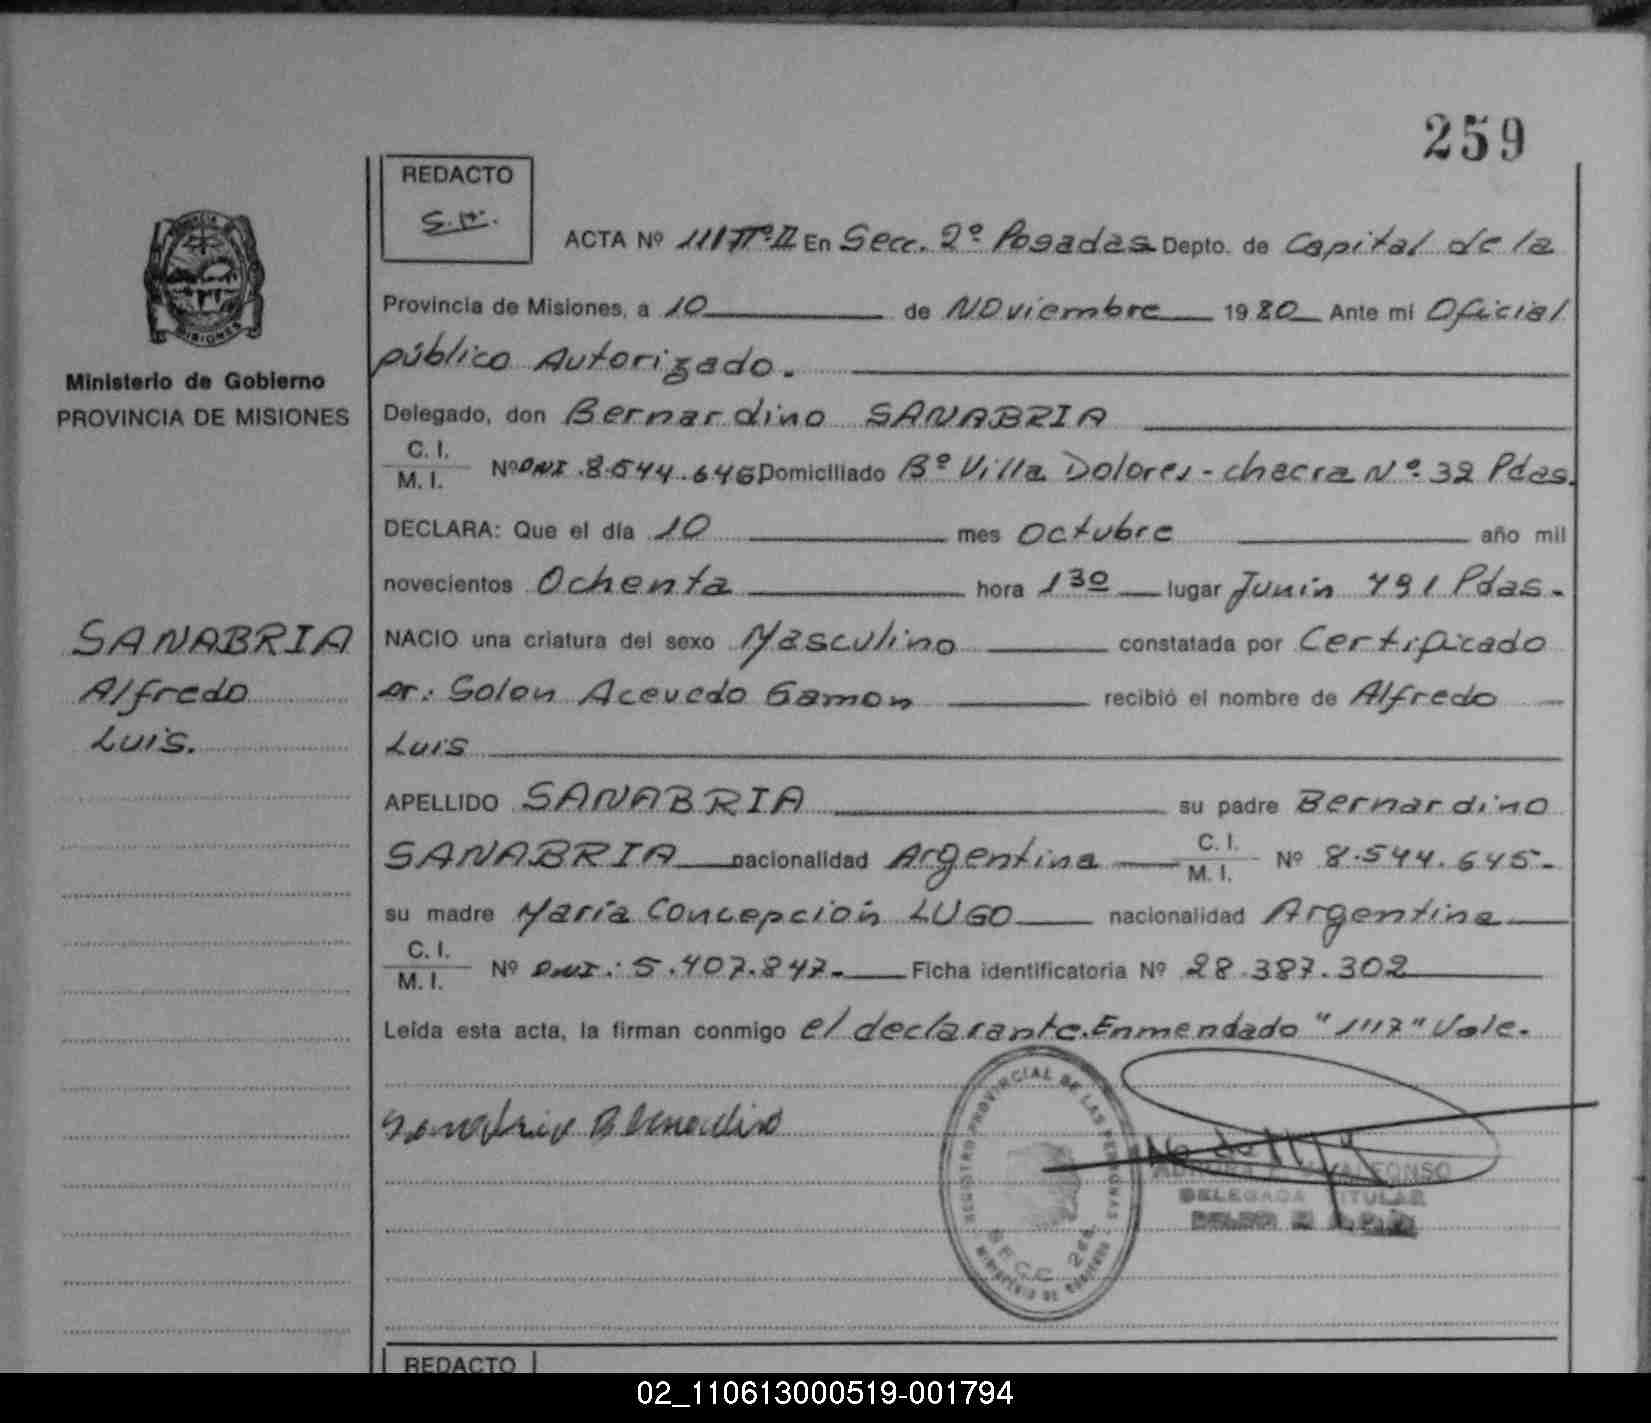 259
REDACTO
S.H.
ACTA Nº 1117 Tº II En Secc. 2º Posadas Depto. de Capital de la
Provincia de Misiones, a 10 de Noviembre 1980 Ante mi Oficial
público Autorizado.
Ministerio de Gobierno
PROVINCIA DE MISIONES
Delegado, don Bernardino SANABRIA
C. I.
M. I. Nº DNI 8.544.645 Domiciliado Bº Villa Dolores - chacra Nº 32 Pdas.
DECLARA: Que el día 10 mes Octubre año mil
novecientos Ochenta hora 1 30 lugar Junín Pdas.
SANABRIA
Alfredo
Luis.
NACIO una criatura del sexo Masculino constatada por Certificado
Dr: Solon Acevedo Gamon recibió el nombre de Alfredo
Luis
APELLIDO SANABRIA su padre Bernardino
SANABRIA nacionalidad Argentina C. I.
M. I. Nº 8.544.645-
su madre María Concepción LUGO nacionalidad Argentina
C. I.
M. I. Nº DNI: 5.407.847.- Ficha identificatoria Nº 28.387.302
Leída esta acta, la firman conmigo el declarante. Enmendado "1117" Vale.
Sanabria Bernardino
REGISTRO PROVINCIAL DE LAS PERSONAS
SECC 2da.
MINISTERIO DE GOBIERNO
DELEGADA TITULAR
REDACTO
02_110613000519-001794